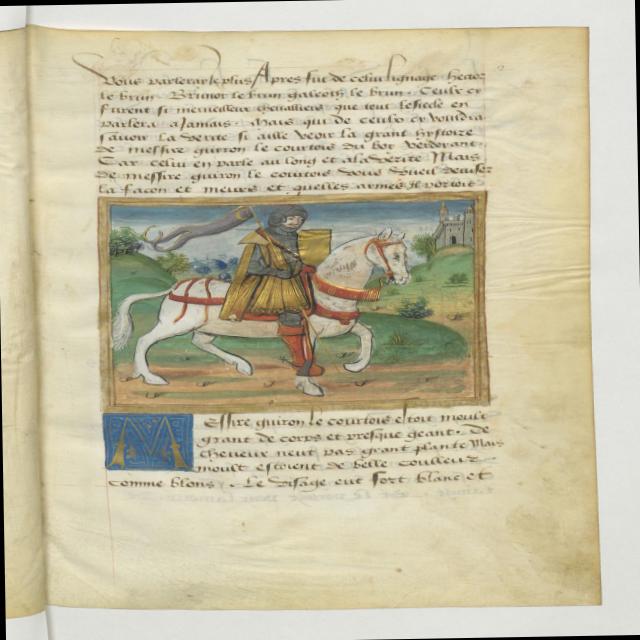 Vous parleray le plus Apres fut de celui lignage hector
le brun Brunor le brun galeoth le brun. Ceulx cy
furent si merveilleux chevalliers que tout le siecle en
parlera a Jamais. Mais qui de ceulx cy vouldra
scavoir la verite si aille veoir la grant hystoire
de messire guiron le courtois du bot verdoyant.
Car celui en parle au long et ala verite Mais
de messire guiron le courtois vous vueil deviser
la facon et meurs et quelles armes Il portoit
Messire guiron le courtois estoit moult
grant de corps et presque geant. De
cheveux neut pas grant plante Mais
moult estoient de belle couleur
comme blons. Le visage eut fort blanc et